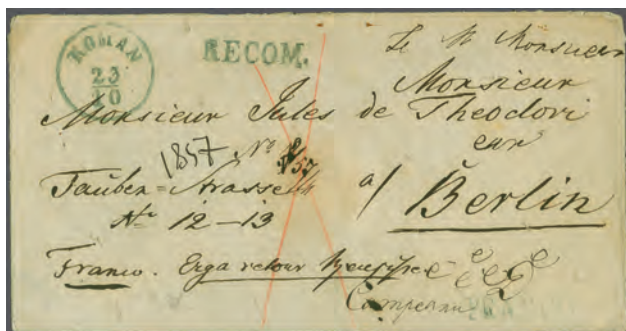 ROMAN
23
10
RECOM.
Le M Monsieur
Monsieur
Monsieur Jules de Theodori
1857 No
Tauben=Strasse
No 12-13
a/ Berlin
Franco. Erga retour